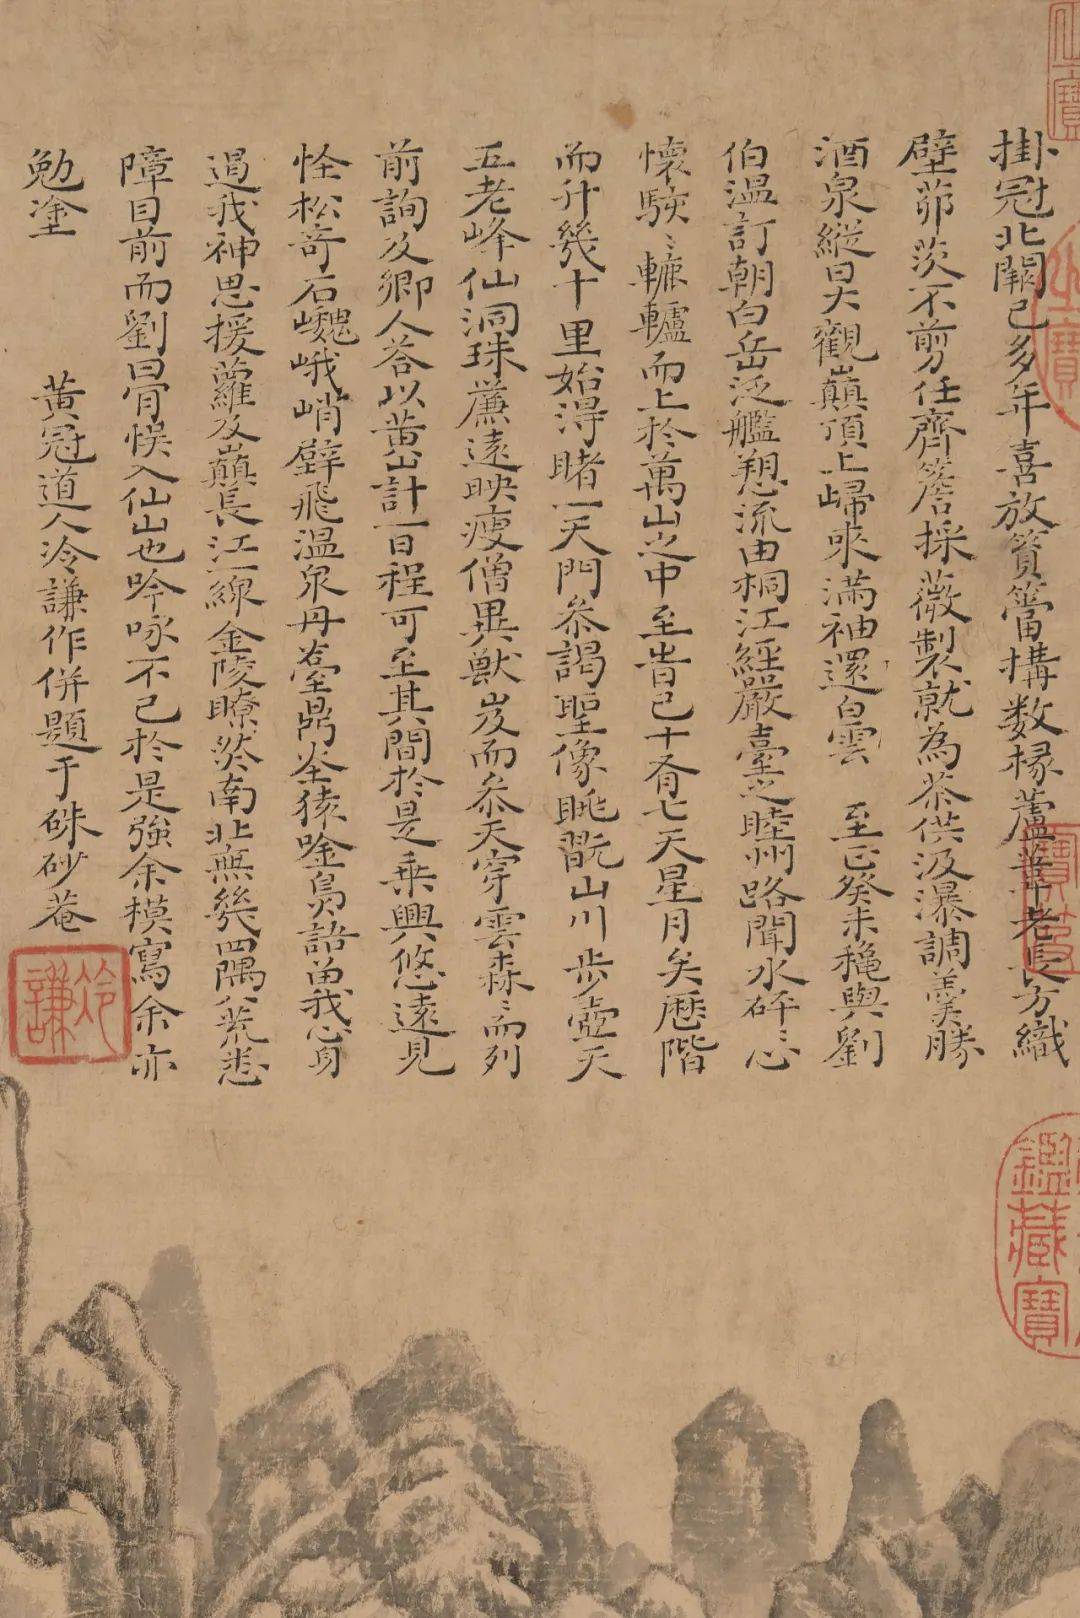 掛冠北闕已多年喜放篔簹搆数椽蘆葦老長方織
壁茆茨不剪任齊簷採薇製就為茶供汲瀑調羹勝
酒泉縱目大觀巔頂上歸來滿袖還白雲 至正癸未穐與劉
伯温訂朝白岳泛艦愬流由桐江經嚴臺之睦州路聞水砰〻心
懷駭〻轆轤而上於萬山之中至昔已十有七天星月矣歷階
而升幾十里始得睹一天門叅謁聖像眺翫山川步壺天
五老峰仙洞珠簾遠映瘦僧異獸岌而叅天穿雲森〻而列
前詢及鄉人荅以黄山計一日程可至其間於是乗興悠遠見
怪松竒石巍峨峭壁飛温泉丹臺鼎峑猿唫鳥語曽我心身
過我神思援蘿及巔長江一線金陵瞭然南北無幾四隅荒悲
障目前而劉曰骨悞入仙山也吟咏不已於是強余模寫余亦
勉塗 黄冠道人泠謙作併題于硃砂菴
泠謙
鑑藏寶